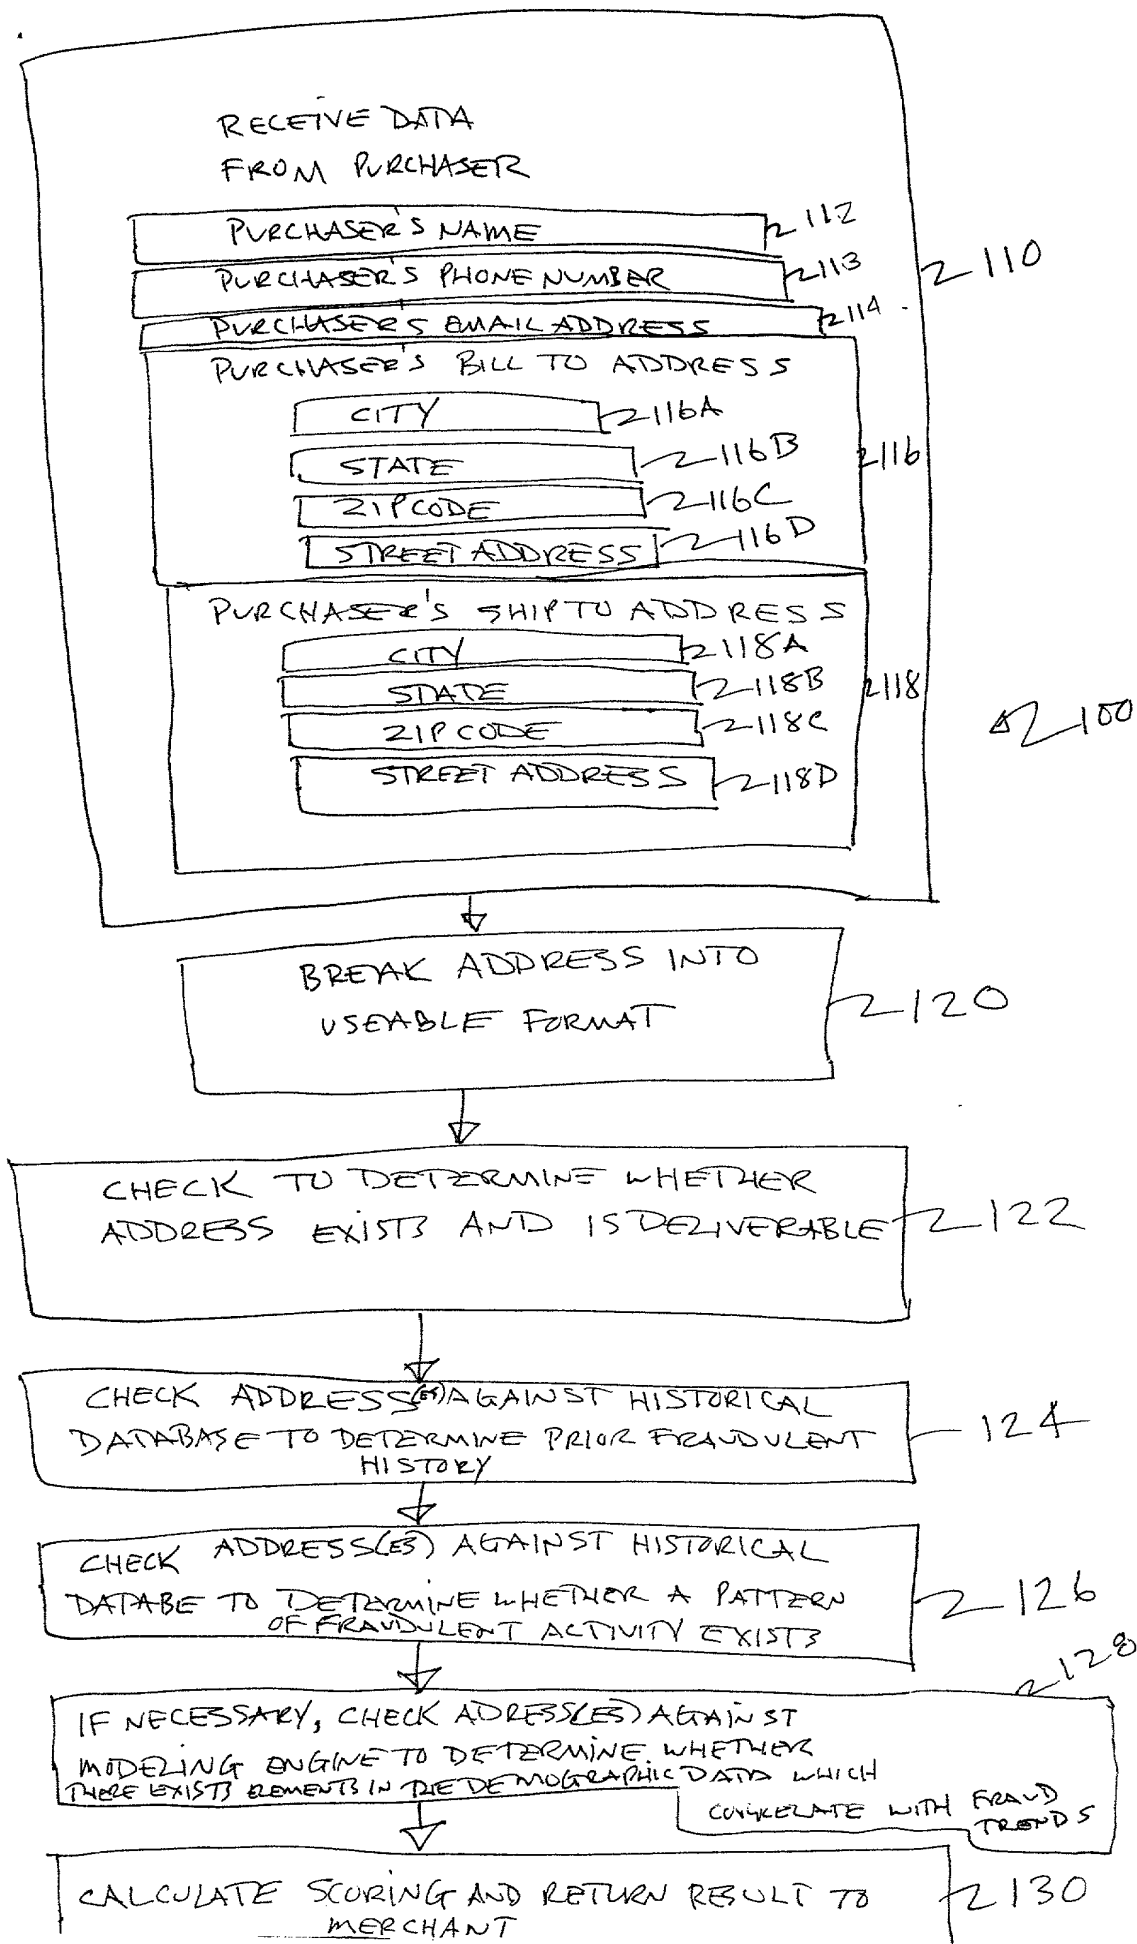 RECEIVE DATA
FROM PURCHASER
PURCHASER'S NAME 112
PURCHASER'S PHONE NUMBER 113
110
PURCHASER'S EMAIL ADDRESS 114
PURCHASER'S BILL TO ADDRESS
CITY 116A
STATE 116B 116
ZIPCODE 116C
STREET ADDRESS 116D
PURCHASER'S SHIP TO ADDRESS
CITY 118A
STATE 118B 118
ZIP CODE 118C
100
STREET ADDRESS 118D
BREAK ADDRESS INTO
USEABLE FORMAT 120
CHECK TO DETERMINE WHETHER
ADDRESS EXISTS AND IS DELIVERABLE 122
CHECK ADDRESS(ES) AGAINST HISTORICAL
DATABASE TO DETERMINE PRIOR FRAUDULENT 124
HISTORY
CHECK ADDRESS(ES) AGAINST HISTORICAL
DATABE TO DETERMINE WHETHER A PATTERN 126
OF FRAUDULENT ACTIVITY EXISTS
128
IF NECESSARY, CHECK ADRESS(ES) AGAINST
MODELING ENGINE TO DETERMINE WHETHER
THERE EXISTS ELEMENTS IN THE DEMOGRAPHIC DATA WHICH
CORRELATE WITH FRAUD
TRENDS
CALCULATE SCORING AND RETURN RESULT TO 130
MERCHANT